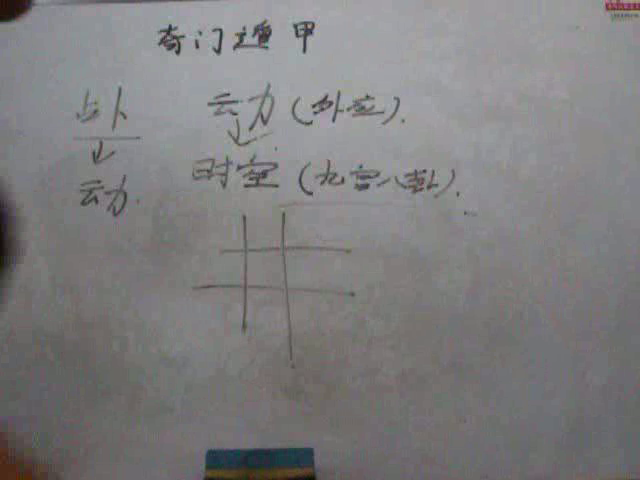 奇门遁甲
占卜 动(外应).
时空(九宫八卦).
动.